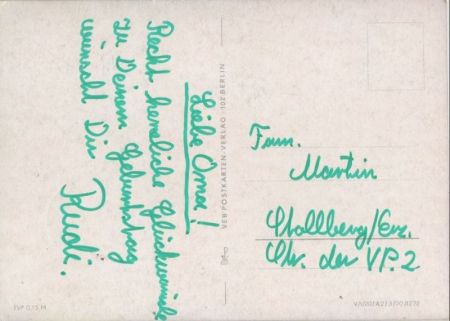 Liebe Oma!
Recht herzliche Glückwünsche
zu Deinem Geburtstag
wünscht Dir
Rudi.
VEB POSTKARTEN-VERLAG · 102 BERLIN
Fam.
Martin
Stollberg/Erz.
Str. der VP. 2
EVP 0,15 M